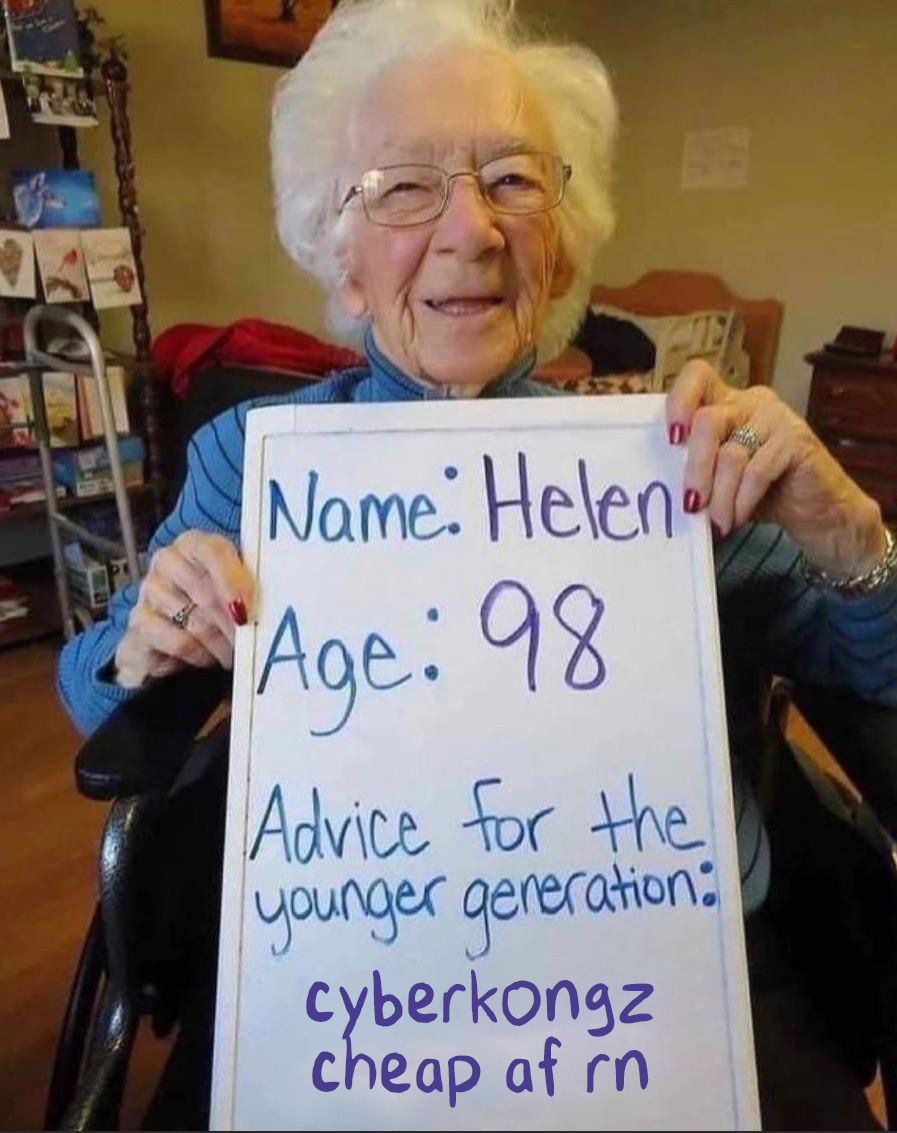 Name: Helen
Age: 98
Advice for the
younger generation:
cyberkongz
cheap af rn